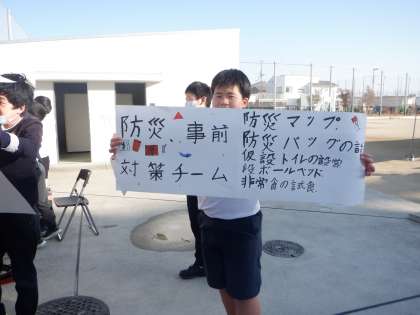 防災、事前
対策チーム
防災マップ
防災バッグの計
仮設トイレの設営
段ボールベッド
非常食の試食